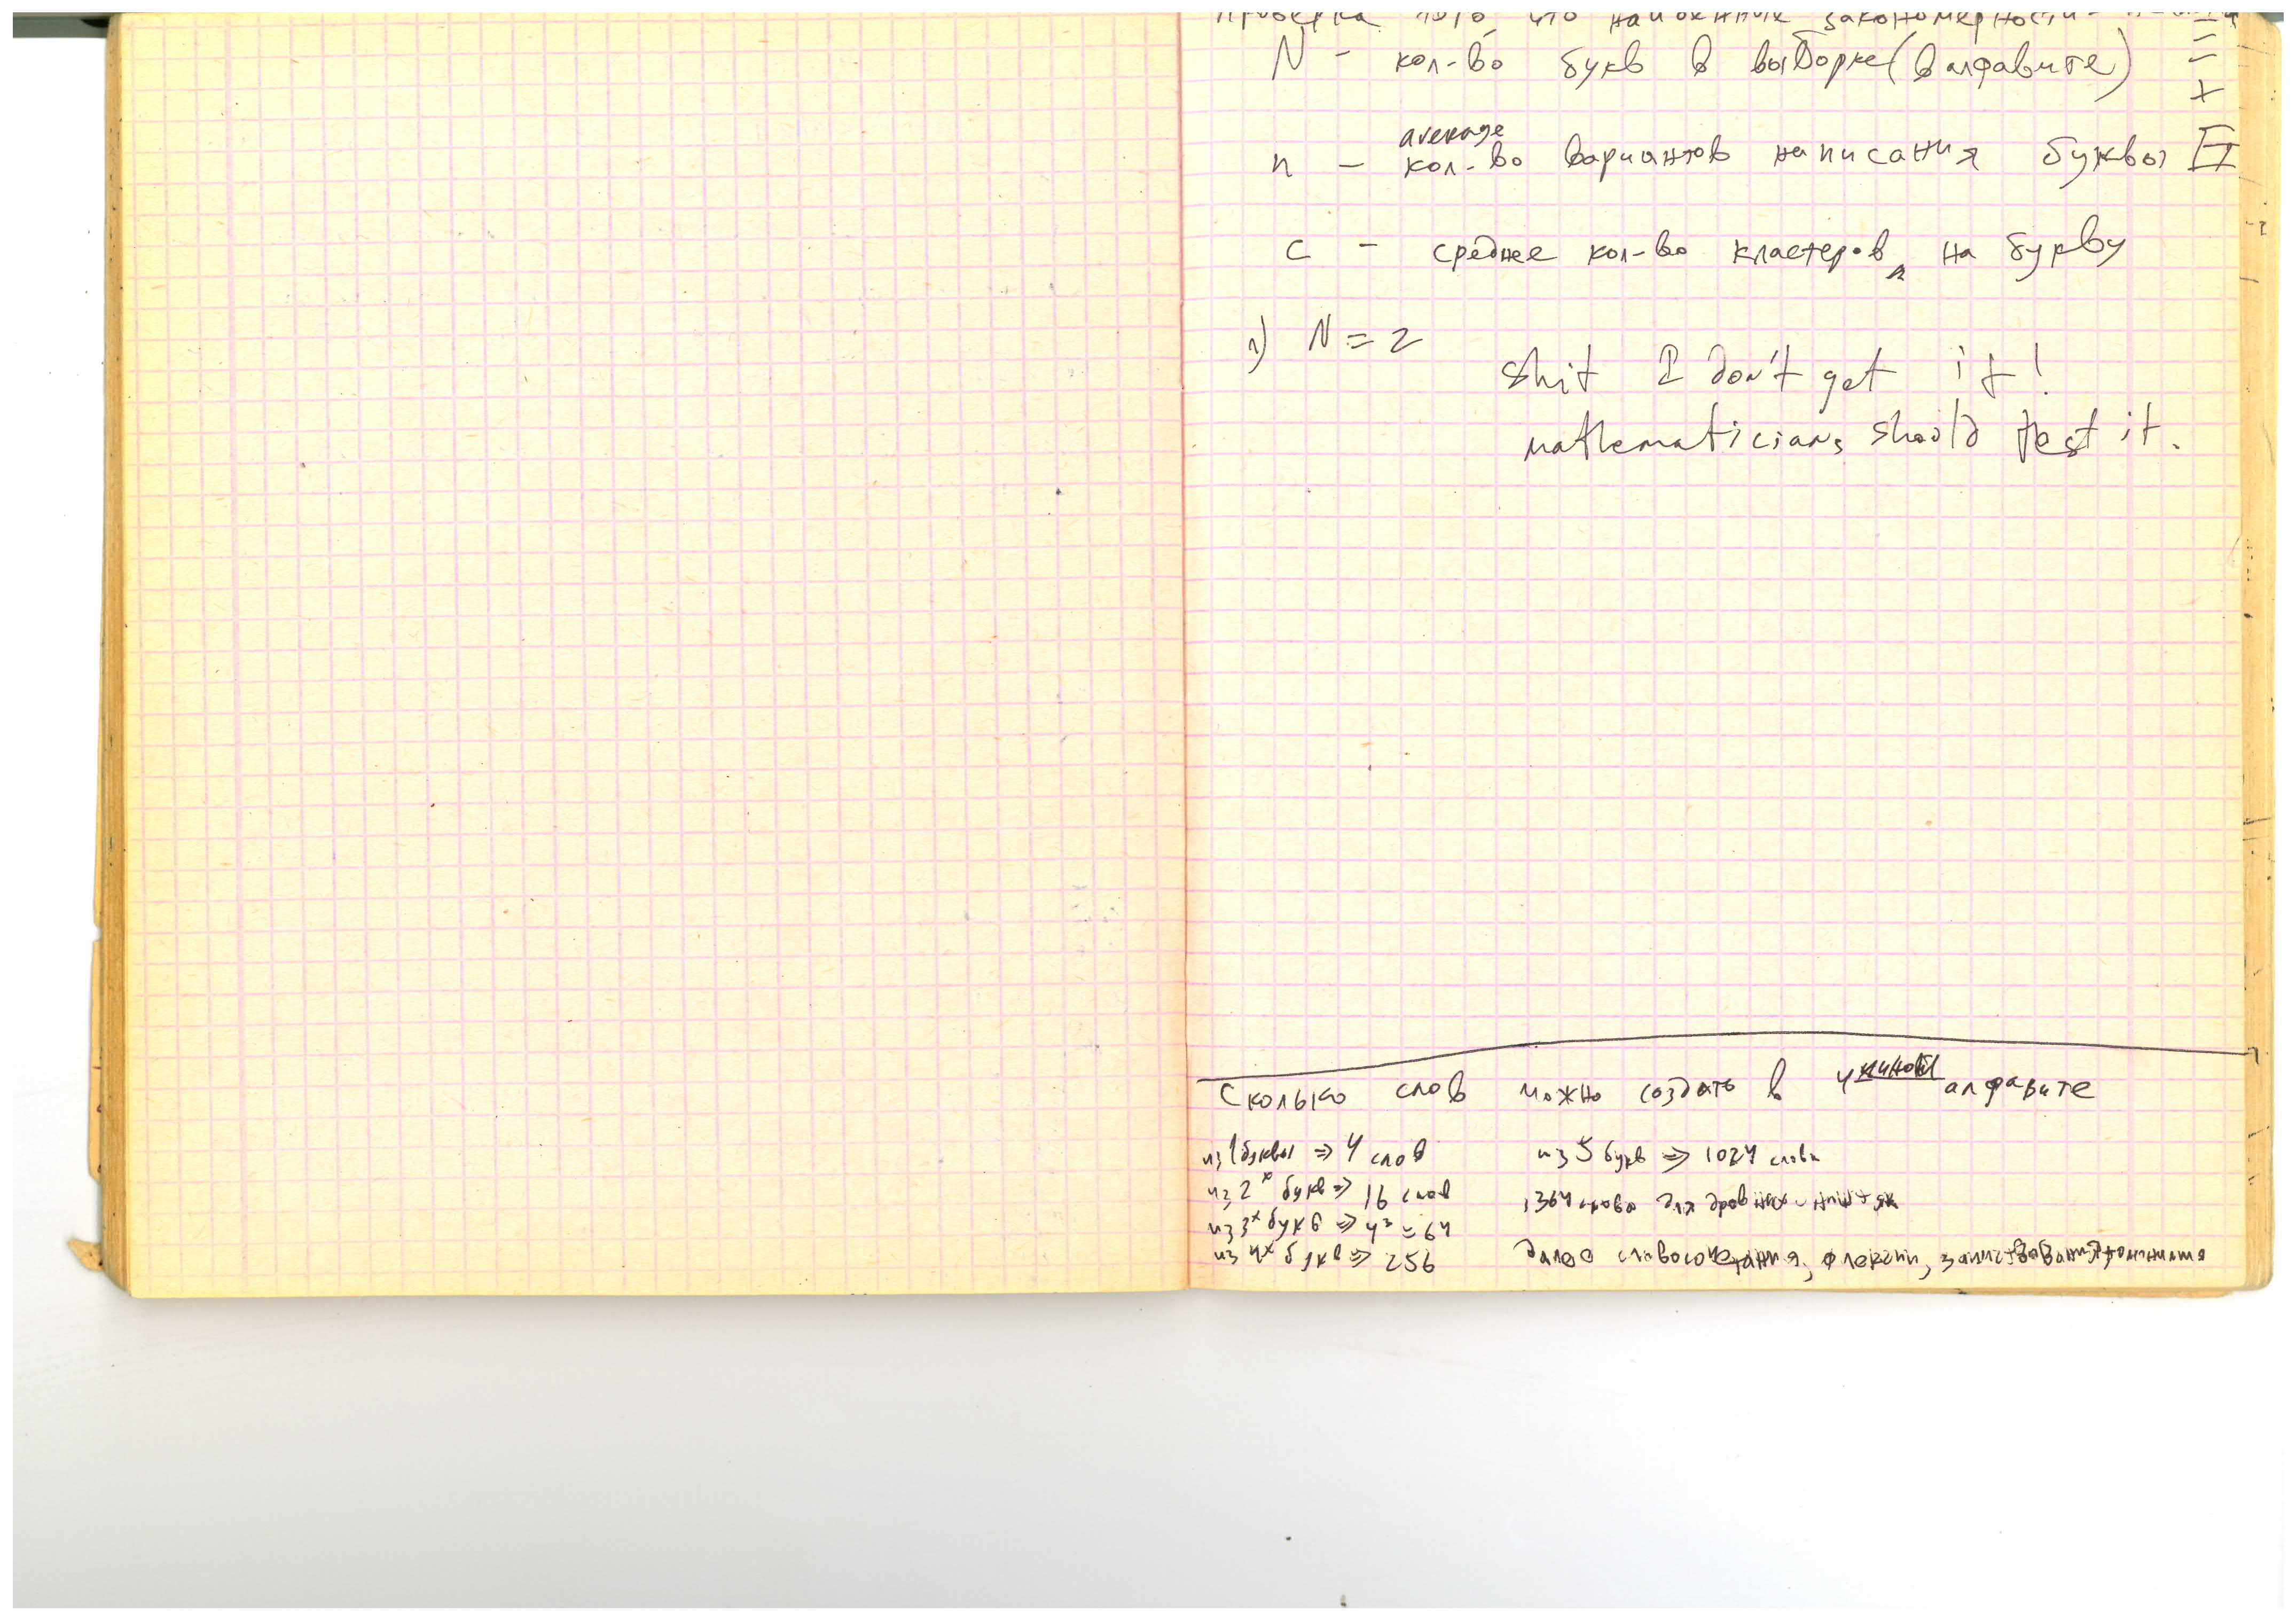 Проверка того что найденные закономерности
N - кол-во букв в выборке (в алфавите)
average
n - кол-во вариантов написания буквы
c - среднее кол-во кластеров на букву
1) N = 2
shit I don't get it!
mathematicians should test it.
Сколько слов можно создать в 4 алфавите
из 1 буквы => 4 слов
из 2х букв => 16 слов
из 3х букв => 4³ = 64
из 4х букв => 256
из 5 букв => 1024 слова
1364 слова для древних
далее словосочетания, флексии, заимствования